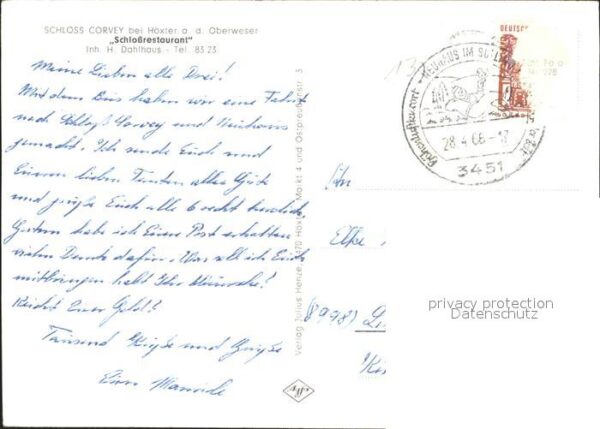 SCHLOSS CORVEY bei Höxter a. d. Oberweser
„Schloßrestaurant"
Inh. H. Dahlhaus - Tel. 83 23
Meine Lieben alle Drei!
Mit dem Bus haben wir eine Fahrt
nach Schloß Corvey und Neuhaus
gemacht. Ich sende Euch und
Euren lieben Tanten alles Gute
und grüße Euch alle 6 recht herzlich.
Gestern habe ich Eure Post erhalten
vielen Dank dafür. Was soll ich Euch
mitbringen habt Ihr Wünsche?
Reicht Euer Geld?
Tausend Küsse und Grüße
Eure
Verlag Julius Henze, 3470 Höxter, Markt 4 und Ostpreußenstr. 3
DEUTSCHE
NEUHAUS IM SOLLING
28.4.68-17
3451
An
Elke
(8998)
privacy protection
Datenschutz